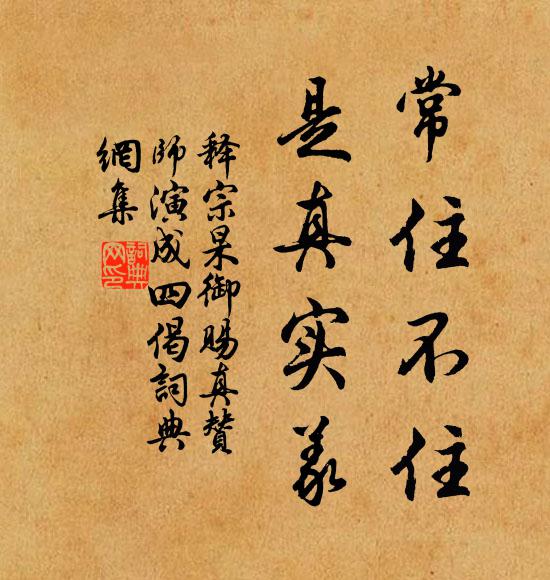 常住不住
是真实义
释宗杲御赐真赞
师演成四偈词典
網集
詞典網印